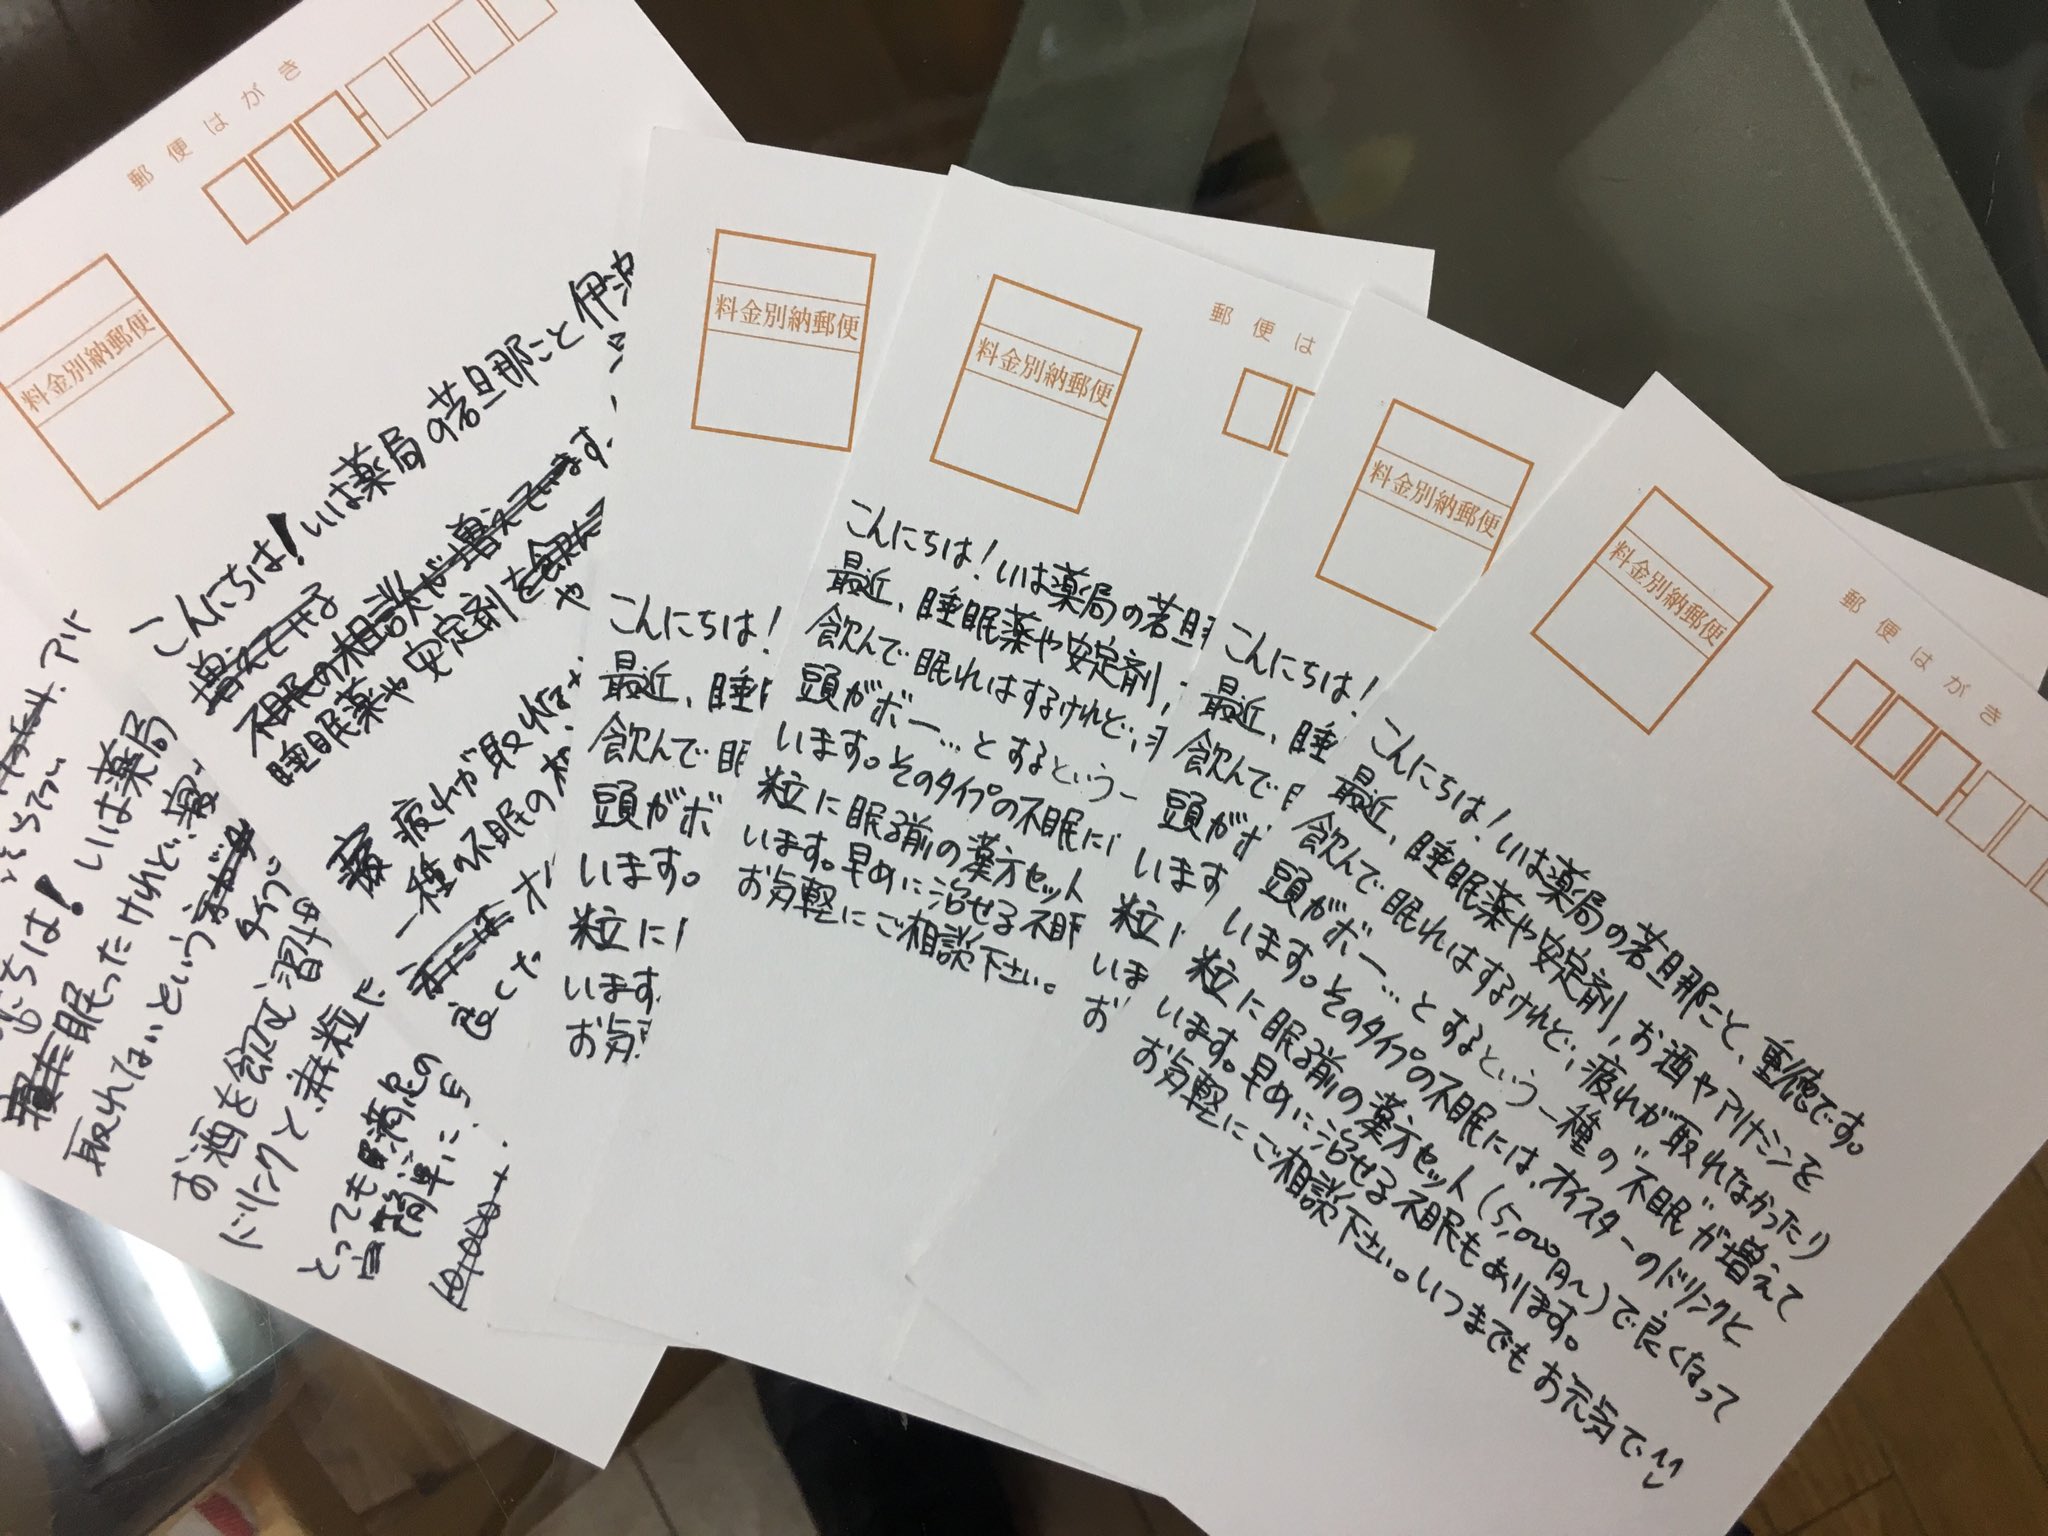 郵便はがき
料金別納郵便
こんにちは!いは薬局の若旦那こと伊波
増えてます
不眠の相談が増えています。
睡眠薬や安定剤を
や
疲れが取れな
一種の不眠の
こんにちは!いは薬局
眠ったけれど、
取れてないという
タイプ
お酒を飲む習
ドリンクと、
とっても満足の
簡単に
料金別納郵便
こんにちは!
最近、睡
飲んで眠
頭がボ
います。
粒に
います
お気
郵便は
料金別納郵便
こんにちは!いは薬局の若旦
最近、睡眠薬や安定剤、
飲んで眠れはするけれど、
頭がボー…とするという一
います。そのタイプの不眠に
粒に眠る前の漢方セット
います。早めに治せる不眠
お気軽にご相談下さい。
料金別納郵便
こんにちは!
最近、睡
飲んで
頭がボ
います
粒に
いま
お
郵便はがき
料金別納郵便
こんにちは!いは薬局の若旦那こと、重徳です。
最近、睡眠薬や安定剤、お酒やアリナミンを
飲んで眠れはするけれど、疲れが取れなかったり
頭がボー…とするという一種の"不眠"が増えて
います。そのタイプの不眠には、オイスターのドリンクと
粒に眠る前の漢方セット(5,000円〜)で良くなって
います。早めに治せる不眠もあります。
お気軽にご相談下さい。いつまでもお元気で